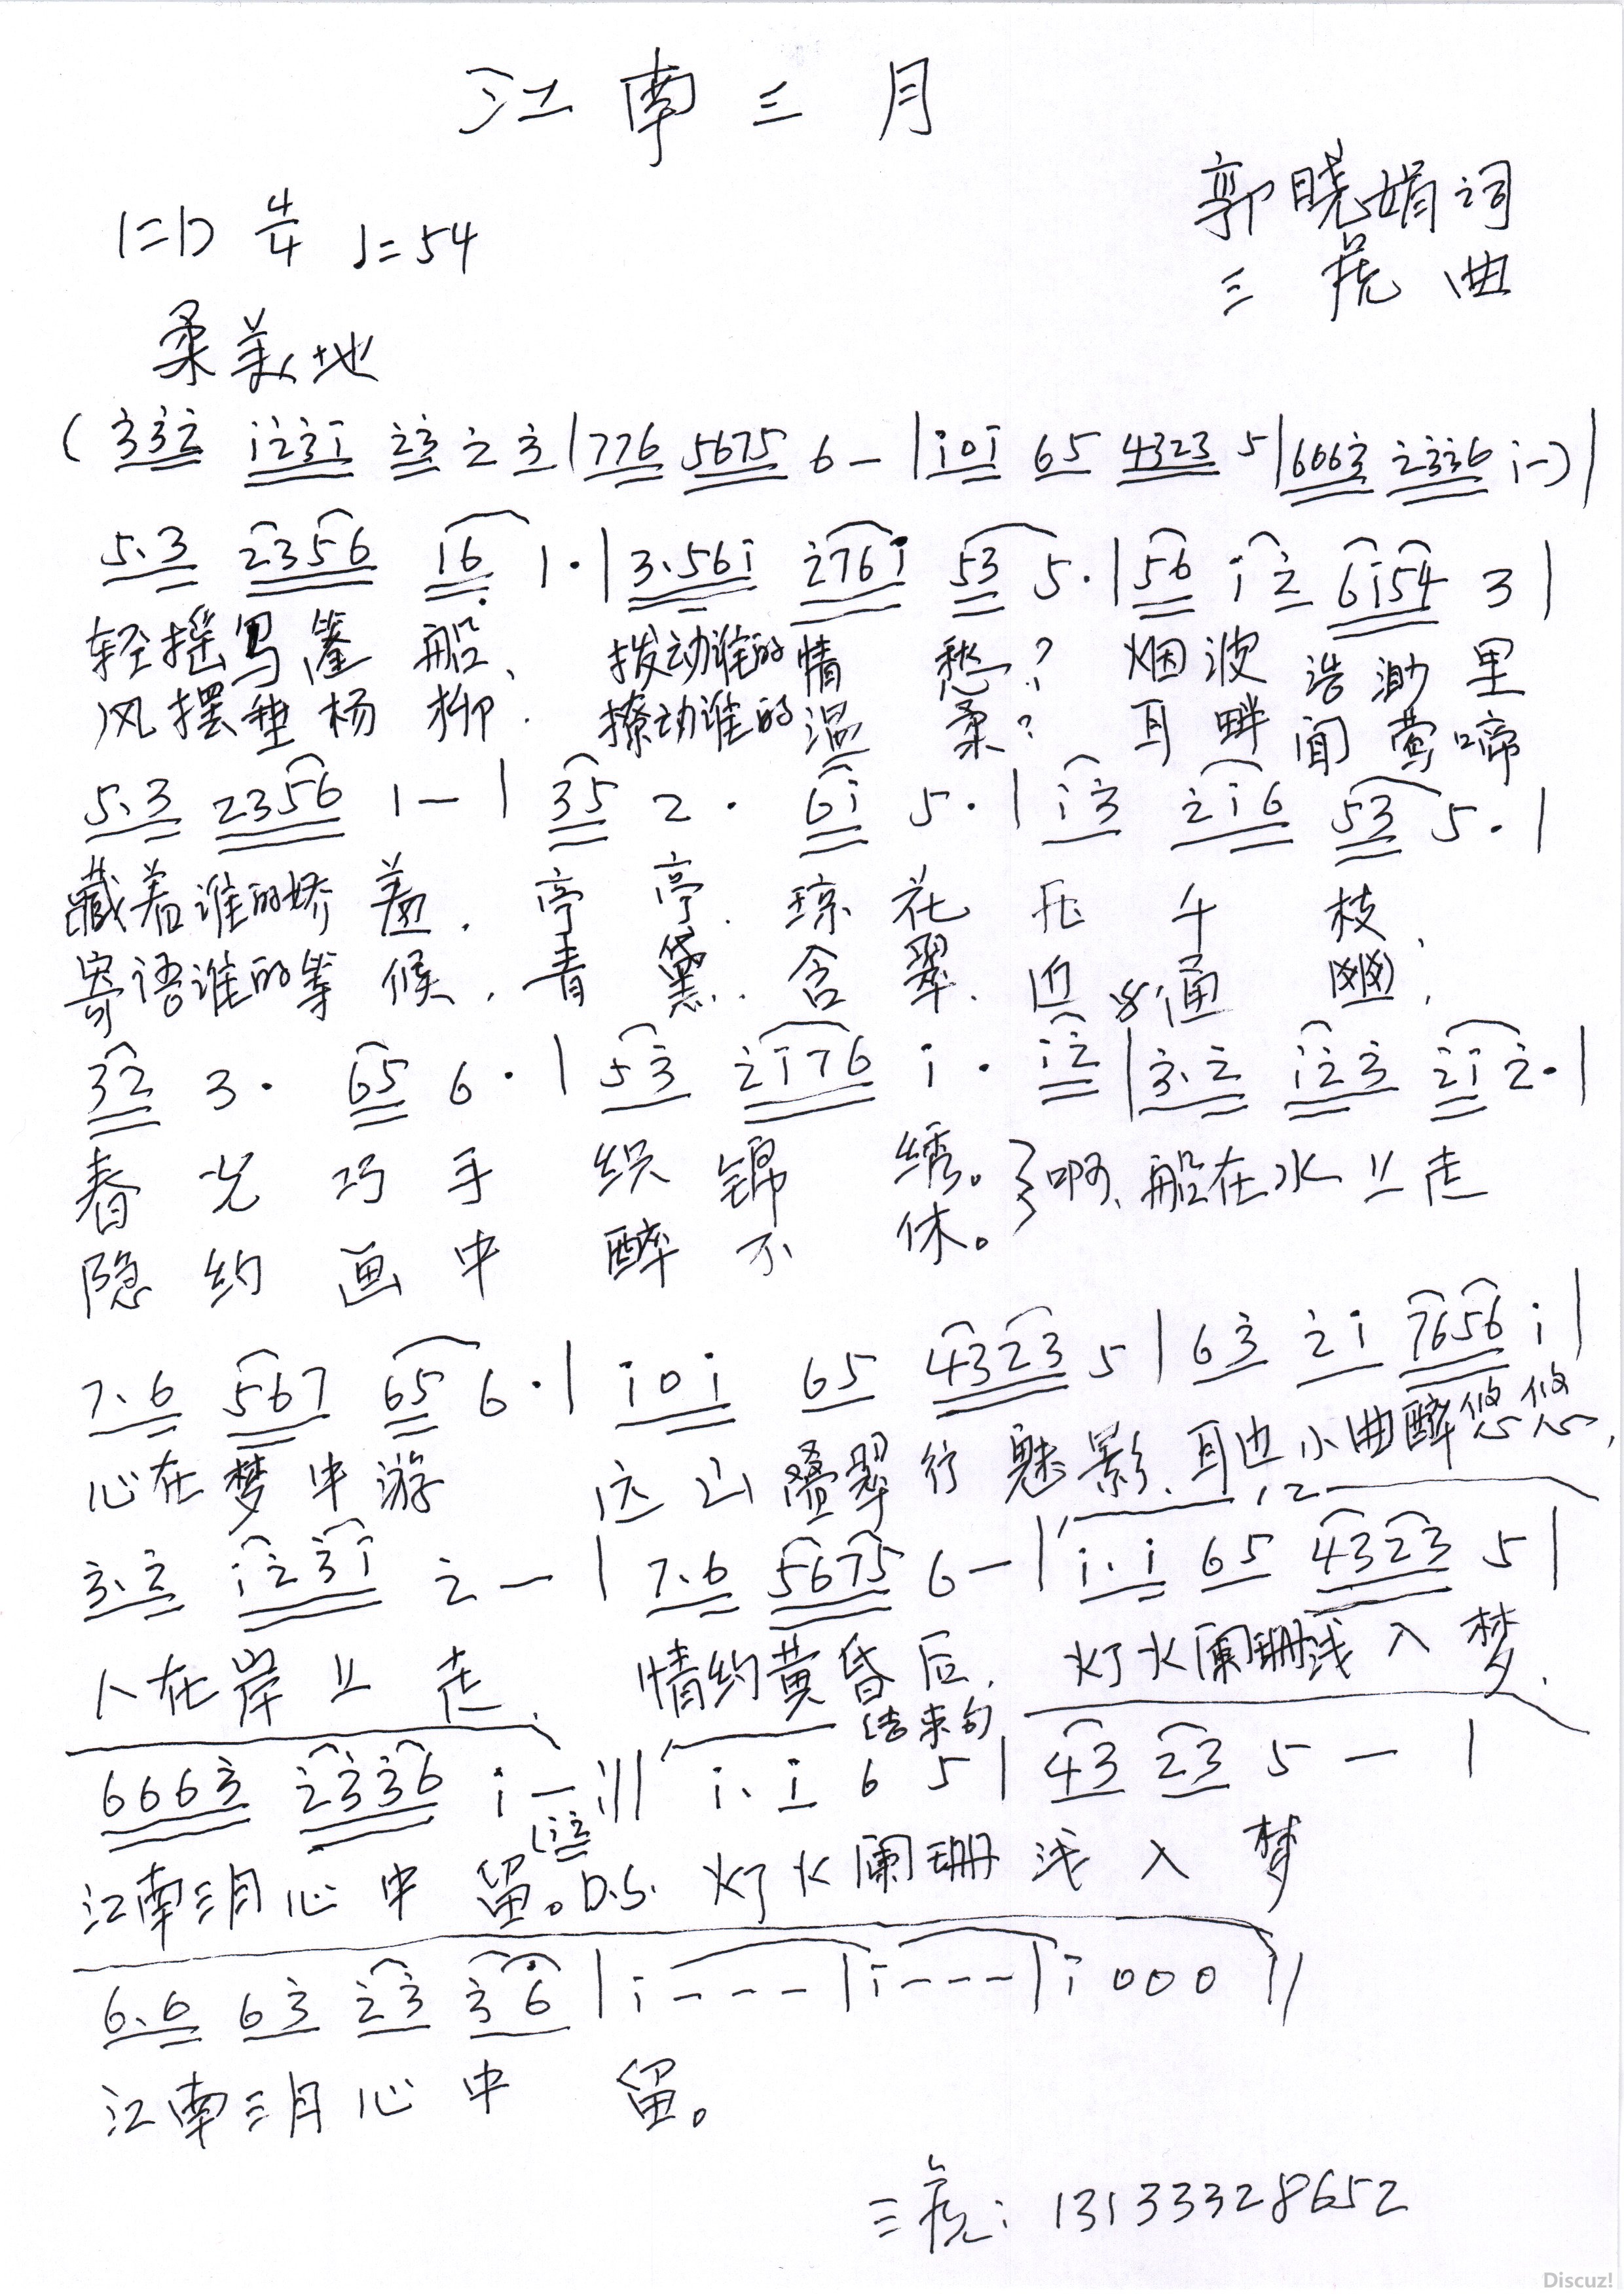 江南三月
郭晓娟词
1=D 4/4 ♩=54
三虎曲
柔美地
(3̇3̇2̇ 1̇2̇3̇1̇ 2̇3̇ 2̇ 3̇|776 5675 6 —|1̇01̇ 65 4323 5|6663̇ 2̇3̇3̇6 1̇ —)|
5.3 2356 16̣ 1·|3.561̇ 2̇761̇ 53 5·|56 1̇ 2̇ 61̇54 3|
轻摇乌篷船、拨动谁的情愁？烟波浩渺里
风摆垂杨柳．撩动谁的温柔？耳畔闻莺啼
5.3 2356 1 —|35 2· 61̇ 5·|1̇3̇ 2̇1̇6 53 5·|
藏着谁的娇羞．亭亭．琼花 千枝、
寄语谁的等候．青黛．含翠．通幽．
32 3· 65 6·|53̇ 2̇1̇76 1̇· 1̇2̇|3̇.2̇ 1̇2̇3̇ 2̇1̇ 2̇·|
春光巧手织锦绣。}啊、船在水上走
隐约画中醉不休。
7.6 567 65 6·|1̇01̇ 65 4323 5|63̇ 2̇1̇ 7656 1̇|
心在梦中游 远山叠翠行魅影、耳边小曲醉悠悠，
1,2
3̇.2̇ 1̇2̇3̇1̇ 2̇ —|7.6 5675 6 —|1̇.1̇ 65 4323 5|
人在岸上走、情约黄昏后，灯火阑珊浅入梦．
结束句
6663̇ 2̇3̇3̇6 1̇ —:‖ 1̇.1̇ 6 5|43 23 5 —|
(1̇2̇
江南三月心中留。D.S. 灯火阑珊浅入梦
6.6 63̇ 2̇3̇ 3̇6|1̇ — — —|1̇ — — —|1̇ 0 0 0‖
江南三月心中留。
三虎：13133328652
Discuz!